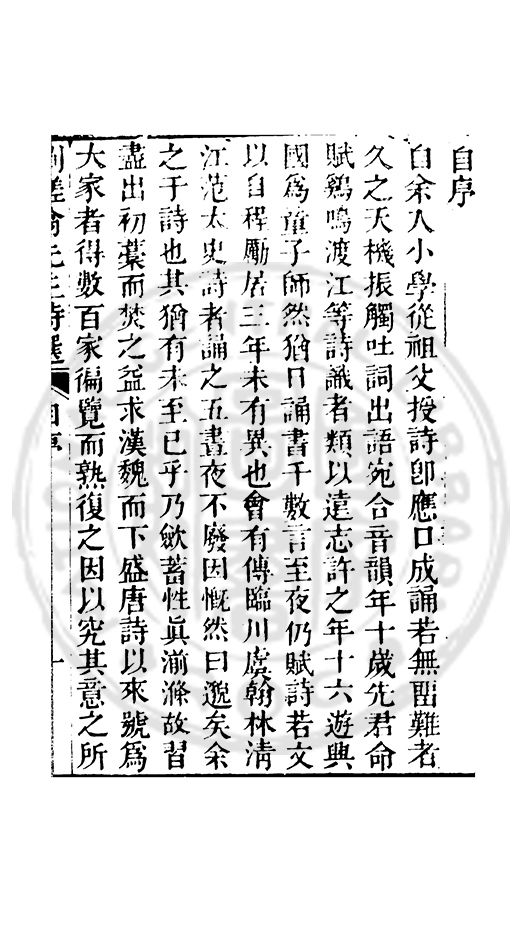 自序
自余入小學從祖父授詩卽應口成誦若無齟難者
久之天機振觸吐詞出語宛合音韻年十歲先君命
賦鷄鳴渡江等詩識者類以遠志許之年十六遊興
國爲童子師然猶日誦書千數言至夜仍賦詩若文
以自程勵居三年未有異也會有傳臨川虞翰林淸
江范太史詩者誦之五晝夜不廢因慨然曰邈矣余
之于詩也其猶有未至已乎乃歛蓄性眞湔滌故習
盡出初藁而焚之益求漢魏而下盛唐詩以來號爲
大家者得數百家徧覽而熟復之因以究其意之所
先生詩選 自序 一